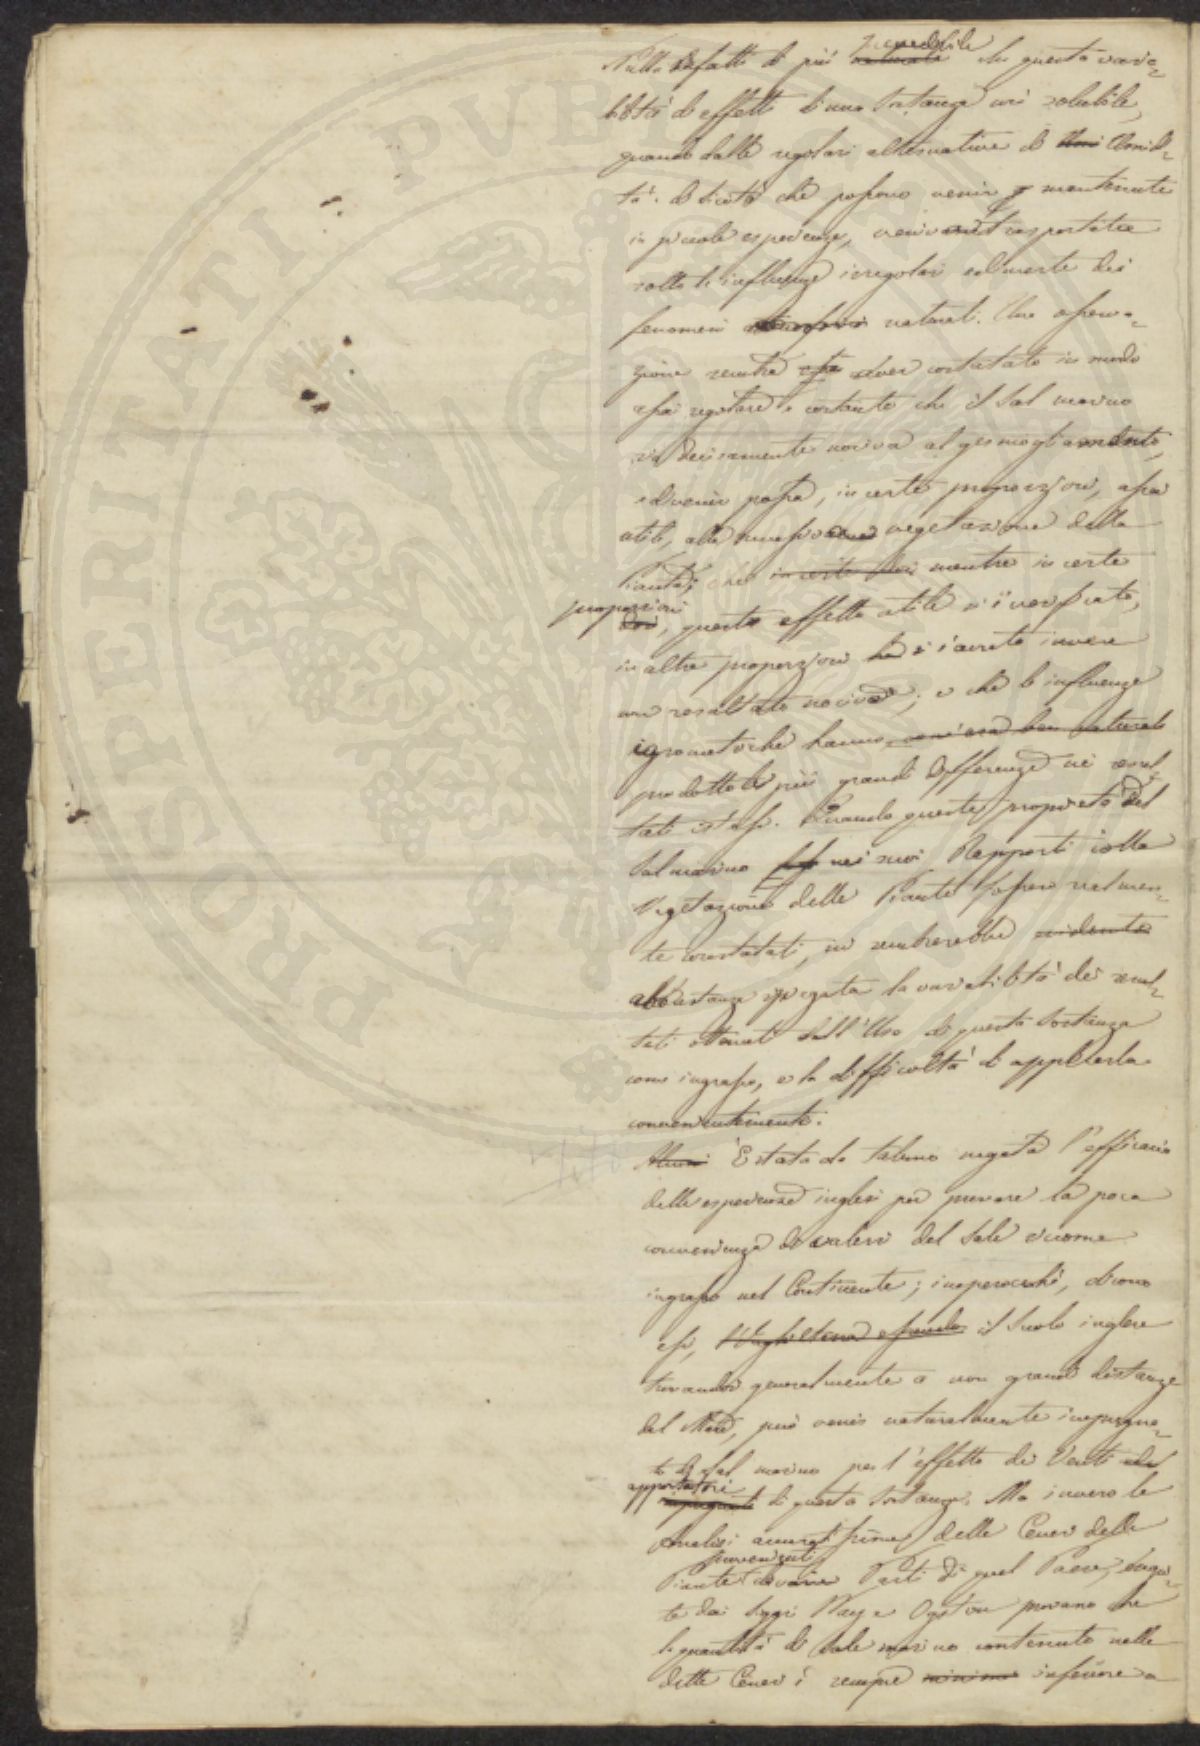 Nulla difatti di più ~~naturale~~ prevedibile che questa varia-
bilità di effetti d'una sostanza così solubile,
quando dalle regolari alternative di ~~Umi~~ Umidi-
tà e di siccità che possono venir mantenute
in piccole esperienze, veniva trasportata
sotto le influenze irregolari dei
fenomeni naturali. Una osserva-
zione sembra aver costatato in modo
assai regolare e costante che il Sal marino
sia decisamente nociva al germogliamento,
e divenir possa, in certe proporzioni, assai
utile, alla successiva vegetazione della
Pianta; che ~~in certe dosi~~ mentre in certe
proporzioni ~~dosi~~, questo effetto utile si è verificato,
in altre proporzioni ~~ha~~ si è avuto invece
un resultato nocivo; e che le influenze
igrometriche hanno ~~com'era ben naturale~~
prodotto le più grandi differenze nei resul-
tati stessi. Quando queste proprietà del
Sal marino nei suoi Rapporti colla
Vegetazione delle Piante fossero realmen-
te constatati, mi sembrerebbe ~~evidente~~
abbastanza spiegata la variabilità dei resul-
tati ottenuti dall'Uso di questa Sostanza
come ingrasso, e la difficoltà di applicarla
convenientemente.
~~Alcuni~~ È stata da taluno negata l'efficacia
delle esperienze inglesi per provare la poca
convenienza di valersi del Sale come
ingrasso nel Continente; imperocchè, dicono
essi, ~~l'Inghilterra essendo~~ il Suolo inglese
trovandosi generalmente a non grandi distanze
dal Mare, può venir naturalmente impregna-
to di Sal marino per l'effetto dei Venti
apportatori di questa Sostanza. Ma invero le
Analisi accuratissime delle Ceneri delle
Piante provenienti da varie Parti di quel Paese, esegui-
te dai Sigri Way e Ogston provano che
la quantità di Sale marino contenuto nelle
dette Ceneri è sempre ~~minima~~ inferiore a